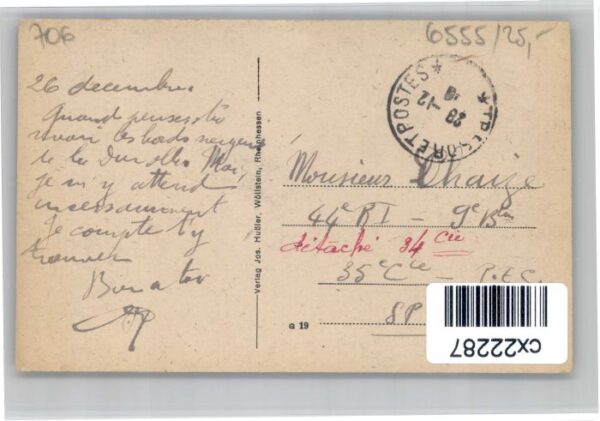 706
6555/25,-
26 decembre
Quand penses-tu
revoir les bords neigeux
de la Durolle. Moi,
je m'y attend
incessamment
Je compte t'y
trouver
Bien à toi
Verlag Jos. Hußler, Wöllstein, Rheinhessen
G 19
* TRESOR ET POSTES *
29-12
Monsieur Chaize
44e RI - 9e Bon
détaché 34 Cie
35e Cie - P.t.C.
SP
cx22287